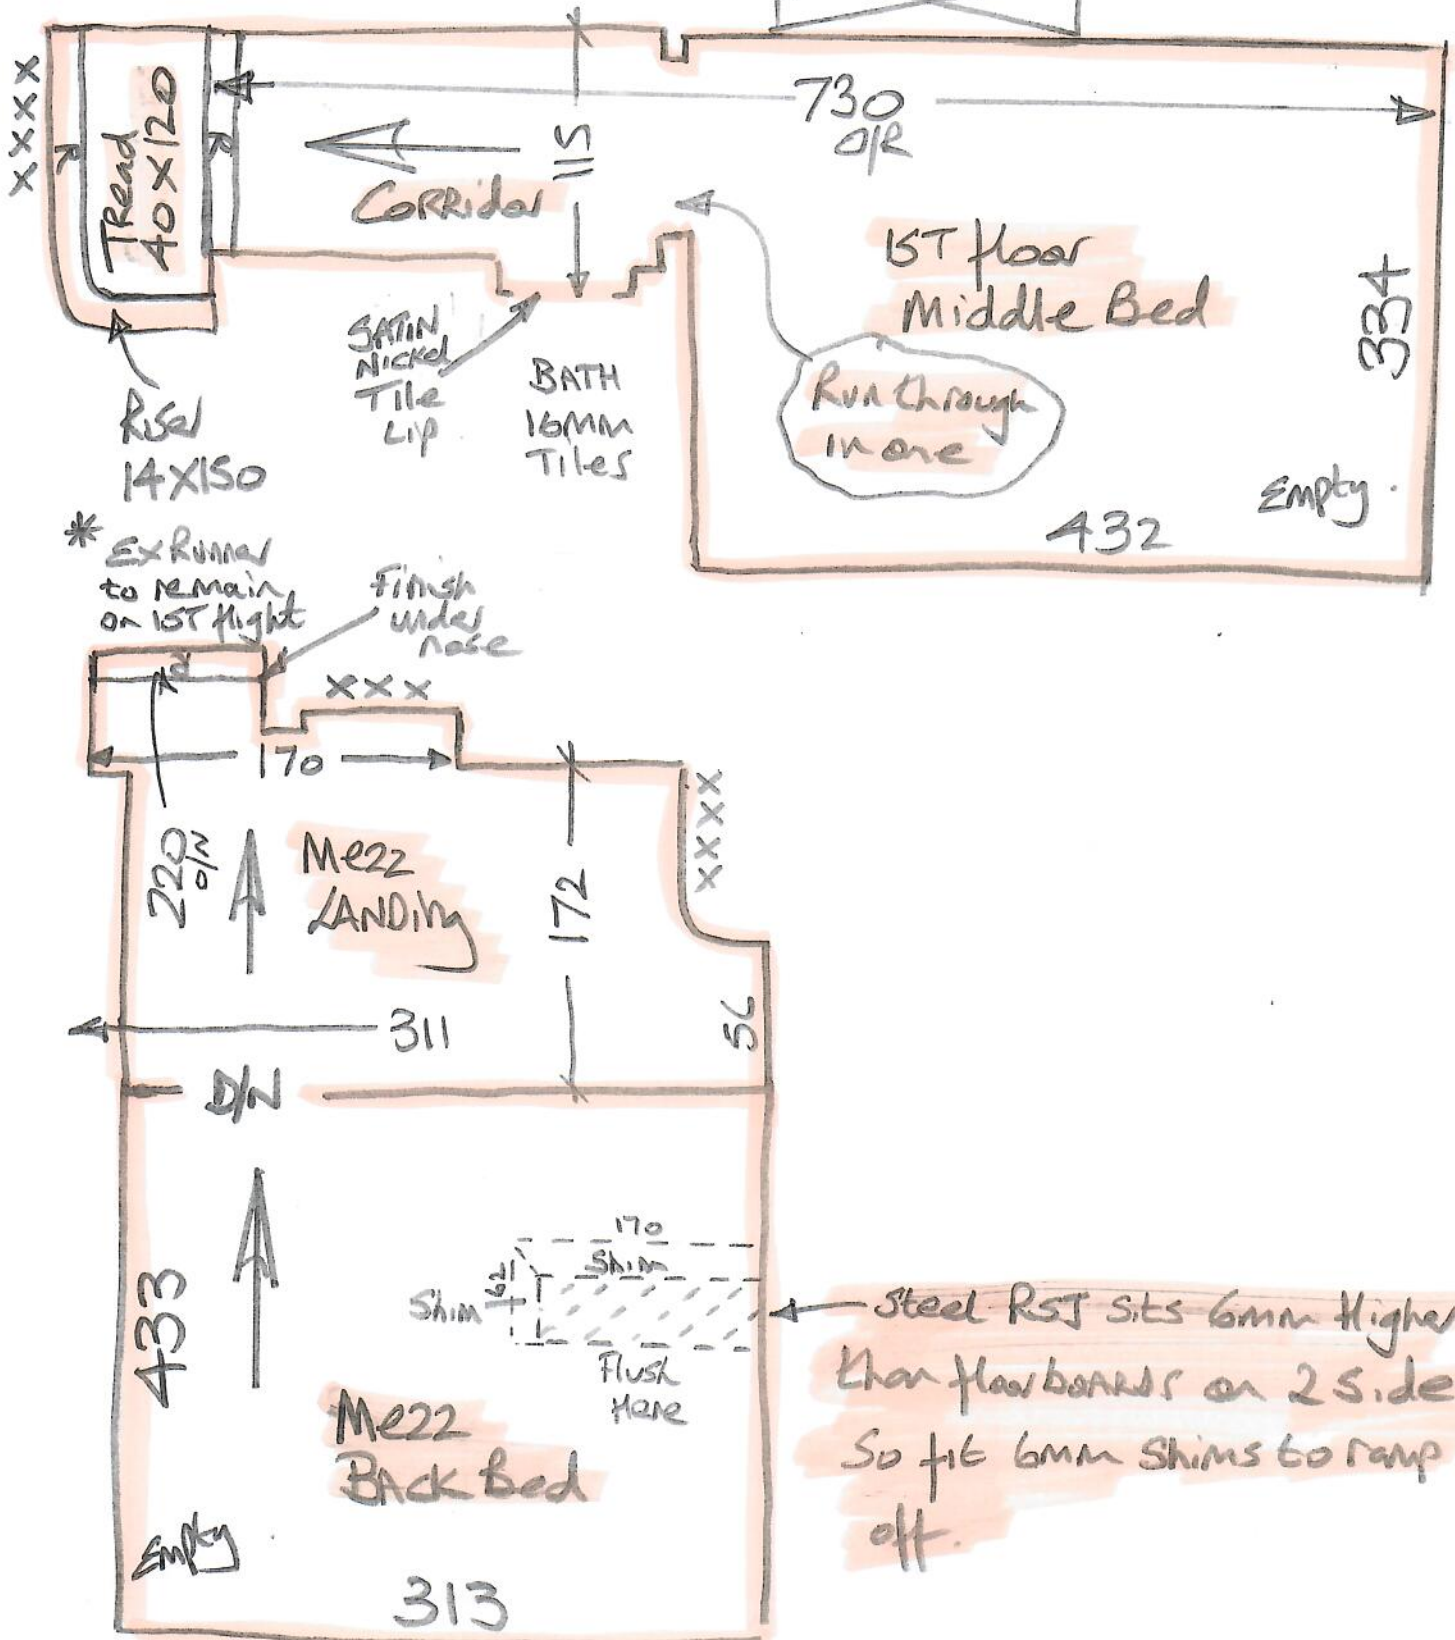 XXXX
Tread
40 X 120
730
O/R
115
Corridor
1ST floor
Middle Bed
334
SATIN
Nickel
Tile
Lip
BATH
16mm
Tiles
Run through
in one
Riser
14X150
Empty.
432
* Ex Runner
to remain
on 1ST flight
Finish
under
nose
XXX
170
XXXX
220
O/N
Mezz
LANDing
172
311
56
D/N
433
170
Shim
Shim
62
Flush
Here
Steel RSJ Sits 6mm Higher
than floorboards on 2 Side
So fit 6mm Shims to ramp
off.
Mezz
BACK Bed
Empty
313